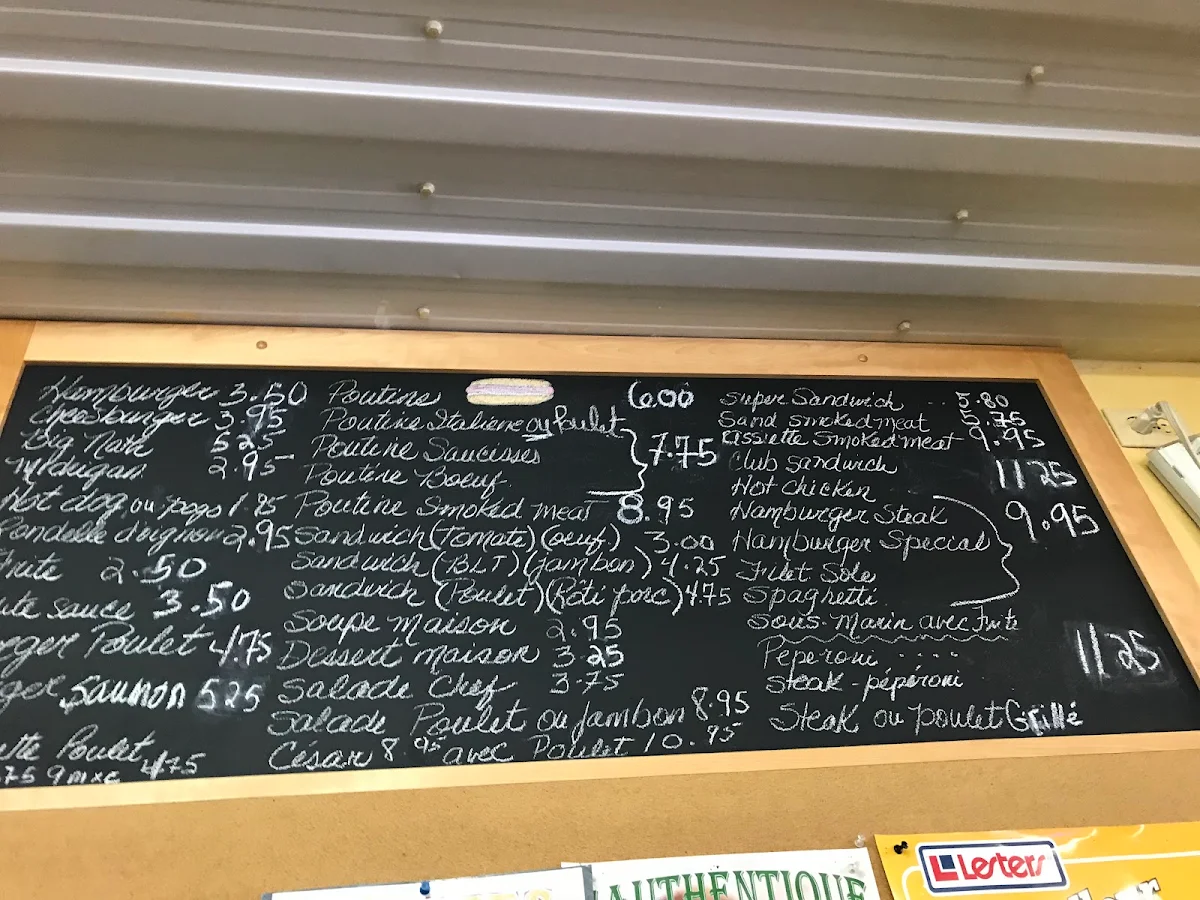 Hamburger 3.50
Cheesburger 3.95
Big Nath 5.25
Midugan 2.95
Hot dog ou pogo 1.95
Rondelle d'oignon 2.95
Frite 2.50
sauce 3.50
Poulet 4.75
Saumon 525
Poulet 4.75
Poutine 6.00
Poutine Italiene ou Poulet
Poutine Saucisses 7.75
Poutine Boeuf
Poutine Smoked meat 8.95
Sandwich (Tomate) (oeuf) 3.00
Sandwich (BLT) (jambon) 4.25
Sandwich (Poulet) (Rôti porc) 4.75
Soupe maison 2.95
Dessert maison 3.25
Salade Chef 3.75
Salade Poulet ou Jambon 8.95
César 8.95 avec Poulet 10.95
Super Sandwich .. 5.80
Sand smoked meat 5.75
Assiette smoked meat 9.95
Club sandwich 11 25
Hot chicken
Hamburger Steak 9.95
Hamburger Special
Filet Sole
Spaghetti
Sous-Marin avec Frite
Peperoni ....
Steak - pépéroni 11 25
Steak ou poulet Grillé
AUTHENTIQUE
Lesters